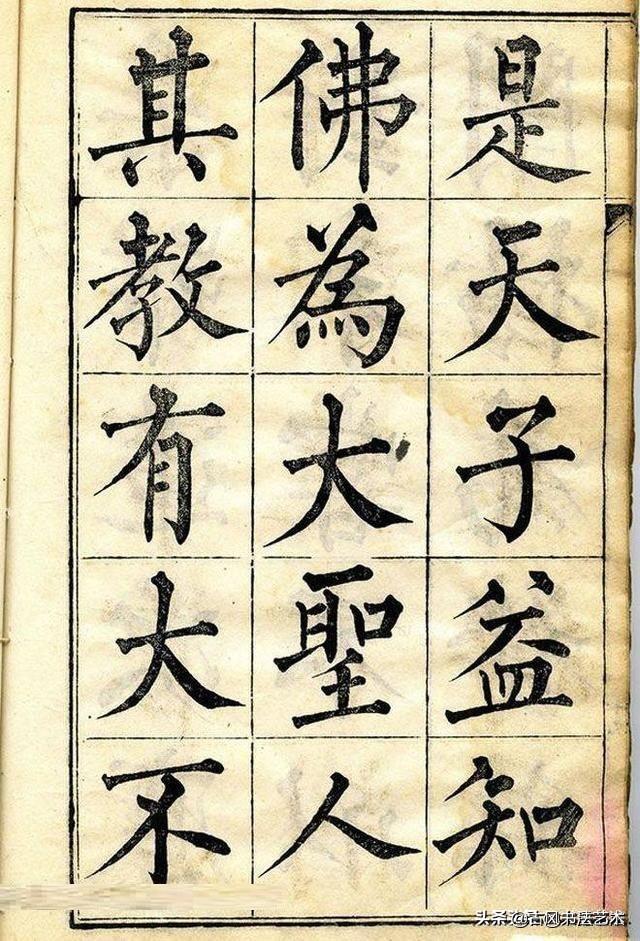 是天子益知
佛為大聖人
其教有大不
头条@古风书法艺术